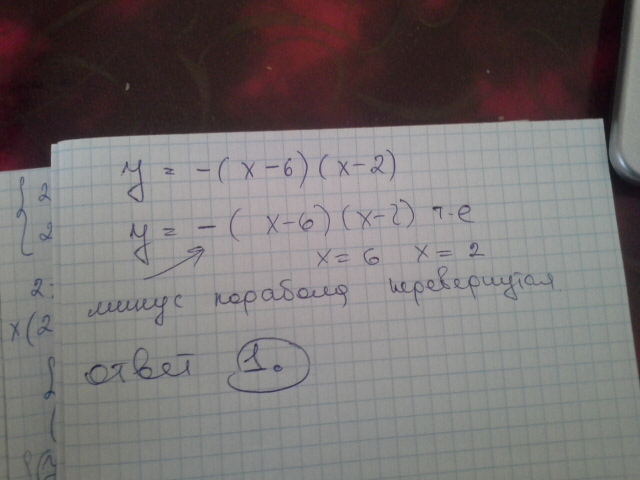 y = -( x-6) (x-2)
y = - ( x-6) (x-2) т.е
x = 6 x = 2
минус парабола перевернутая.
ответ 1.
{ 2
2
2:
x(2